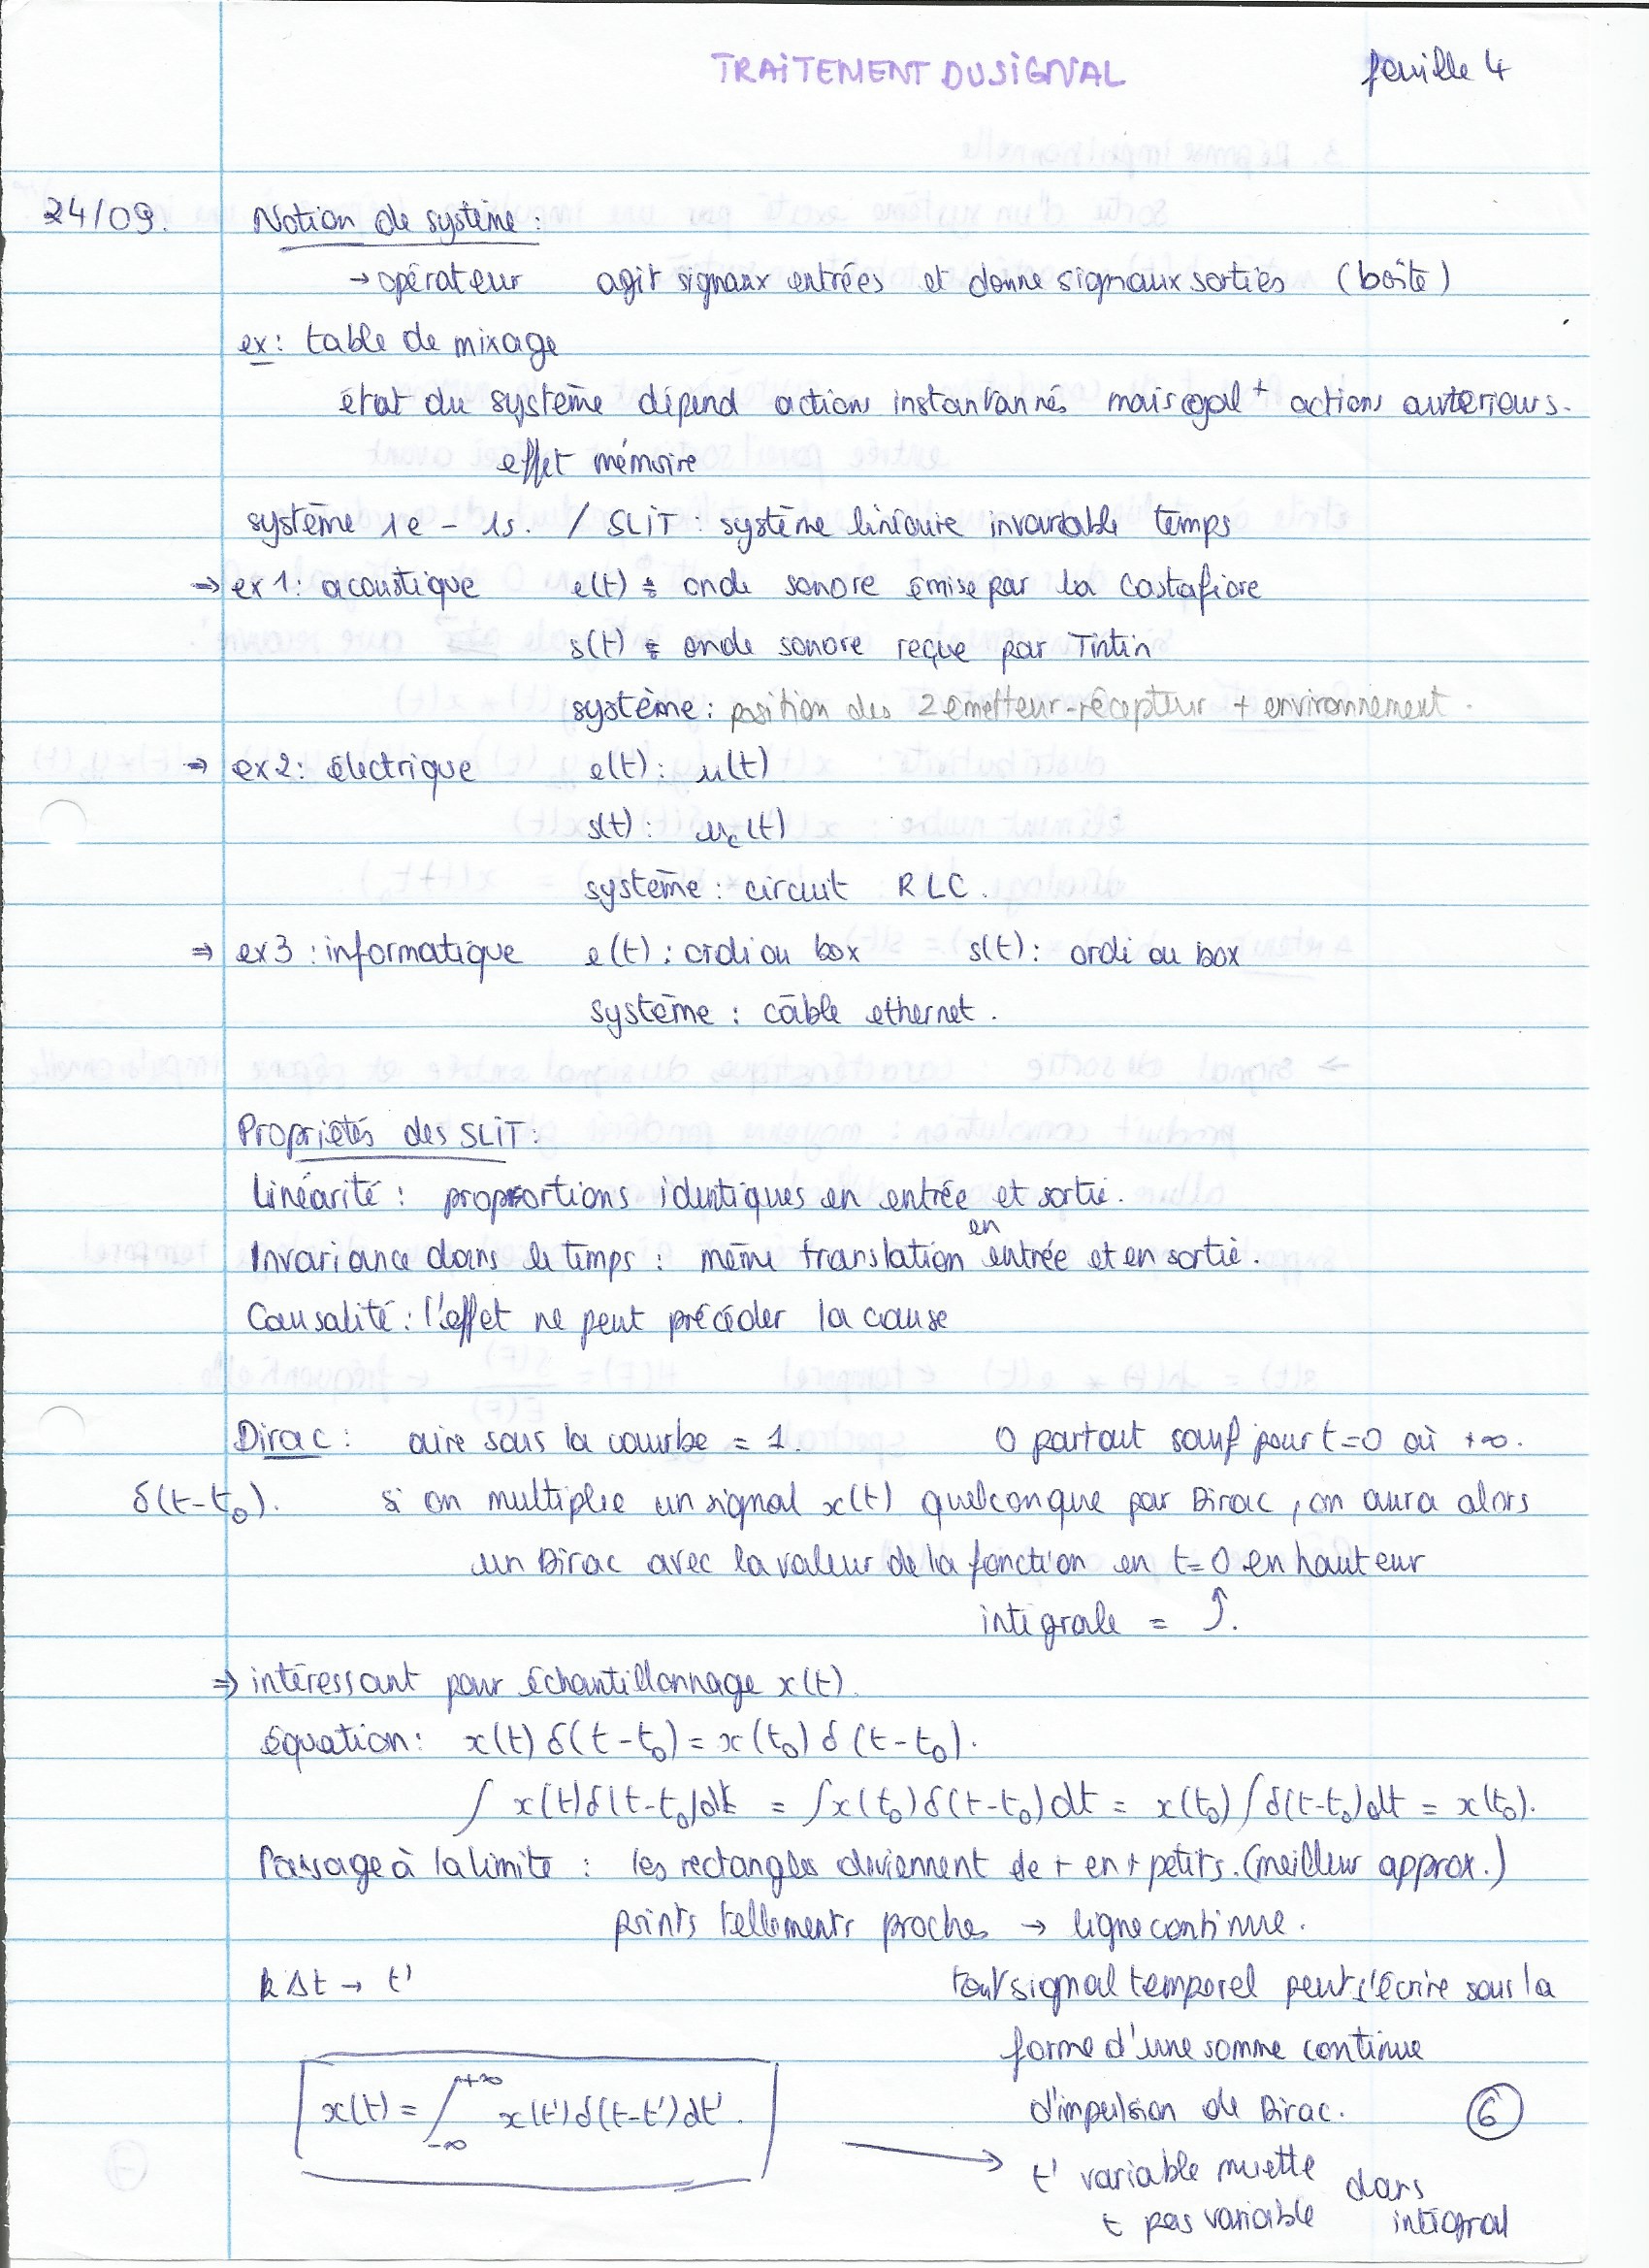 TRAITEMENT DU SIGNAL feuille 4
24/09. Notion de système :
→ opérateur agit signaux entrées et donne signaux sorties (boîte)
ex : table de mixage
état du système dépend actions instantannés mais égal + actions antérieurs.
effet mémoire
système 1e - 1s. / SLIT : système linéaire invariable temps
⇒ ex 1 : acoustique e(t) : onde sonore émise par la Castafiore
s(t) : onde sonore reçue par Tintin
système : position des 2 émetteur-récepteur + environnement.
⇒ ex 2 : électrique e(t) : u(t)
s(t) : uc(t)
système : circuit RLC.
⇒ ex 3 : informatique e(t) : ordi ou box s(t) : ordi ou box
système : câble ethernet.
Propriétés des SLIT :
Linéarité : proportions identiques en entrée et sortie.
Invariance dans le temps : même translation en entrée et en sortie.
Causalité : l'effet ne peut précéder la cause
Dirac : aire sous la courbe = 1. 0 partout sauf pour t=0 où +∞.
δ(t-t₀). si on multiplie un signal x(t) quelconque par Dirac, on aura alors
un Dirac avec la valeur de la fonction en t=0 en hauteur
intégrale = ⤴.
⇒ intéressant pour échantillonnage x(t).
équation : x(t) δ(t-t₀) = x(t₀) δ(t-t₀).
∫ x(t)δ(t-t₀)dt = ∫x(t₀)δ(t-t₀)dt = x(t₀)∫δ(t-t₀)dt = x(t₀).
Passage à la limite : les rectangles deviennent de + en + petits. (meilleur approx.)
points tellements proches → ligne continue.
kΔt → t' tout signal temporel peut s'écrire sous la
forme d'une somme continue
x(t) = ∫_{-∞}^{+∞} x(t')δ(t-t')dt'. d'impulsion de Dirac. 6
→ t' variable muette dans
t pas variable intégral